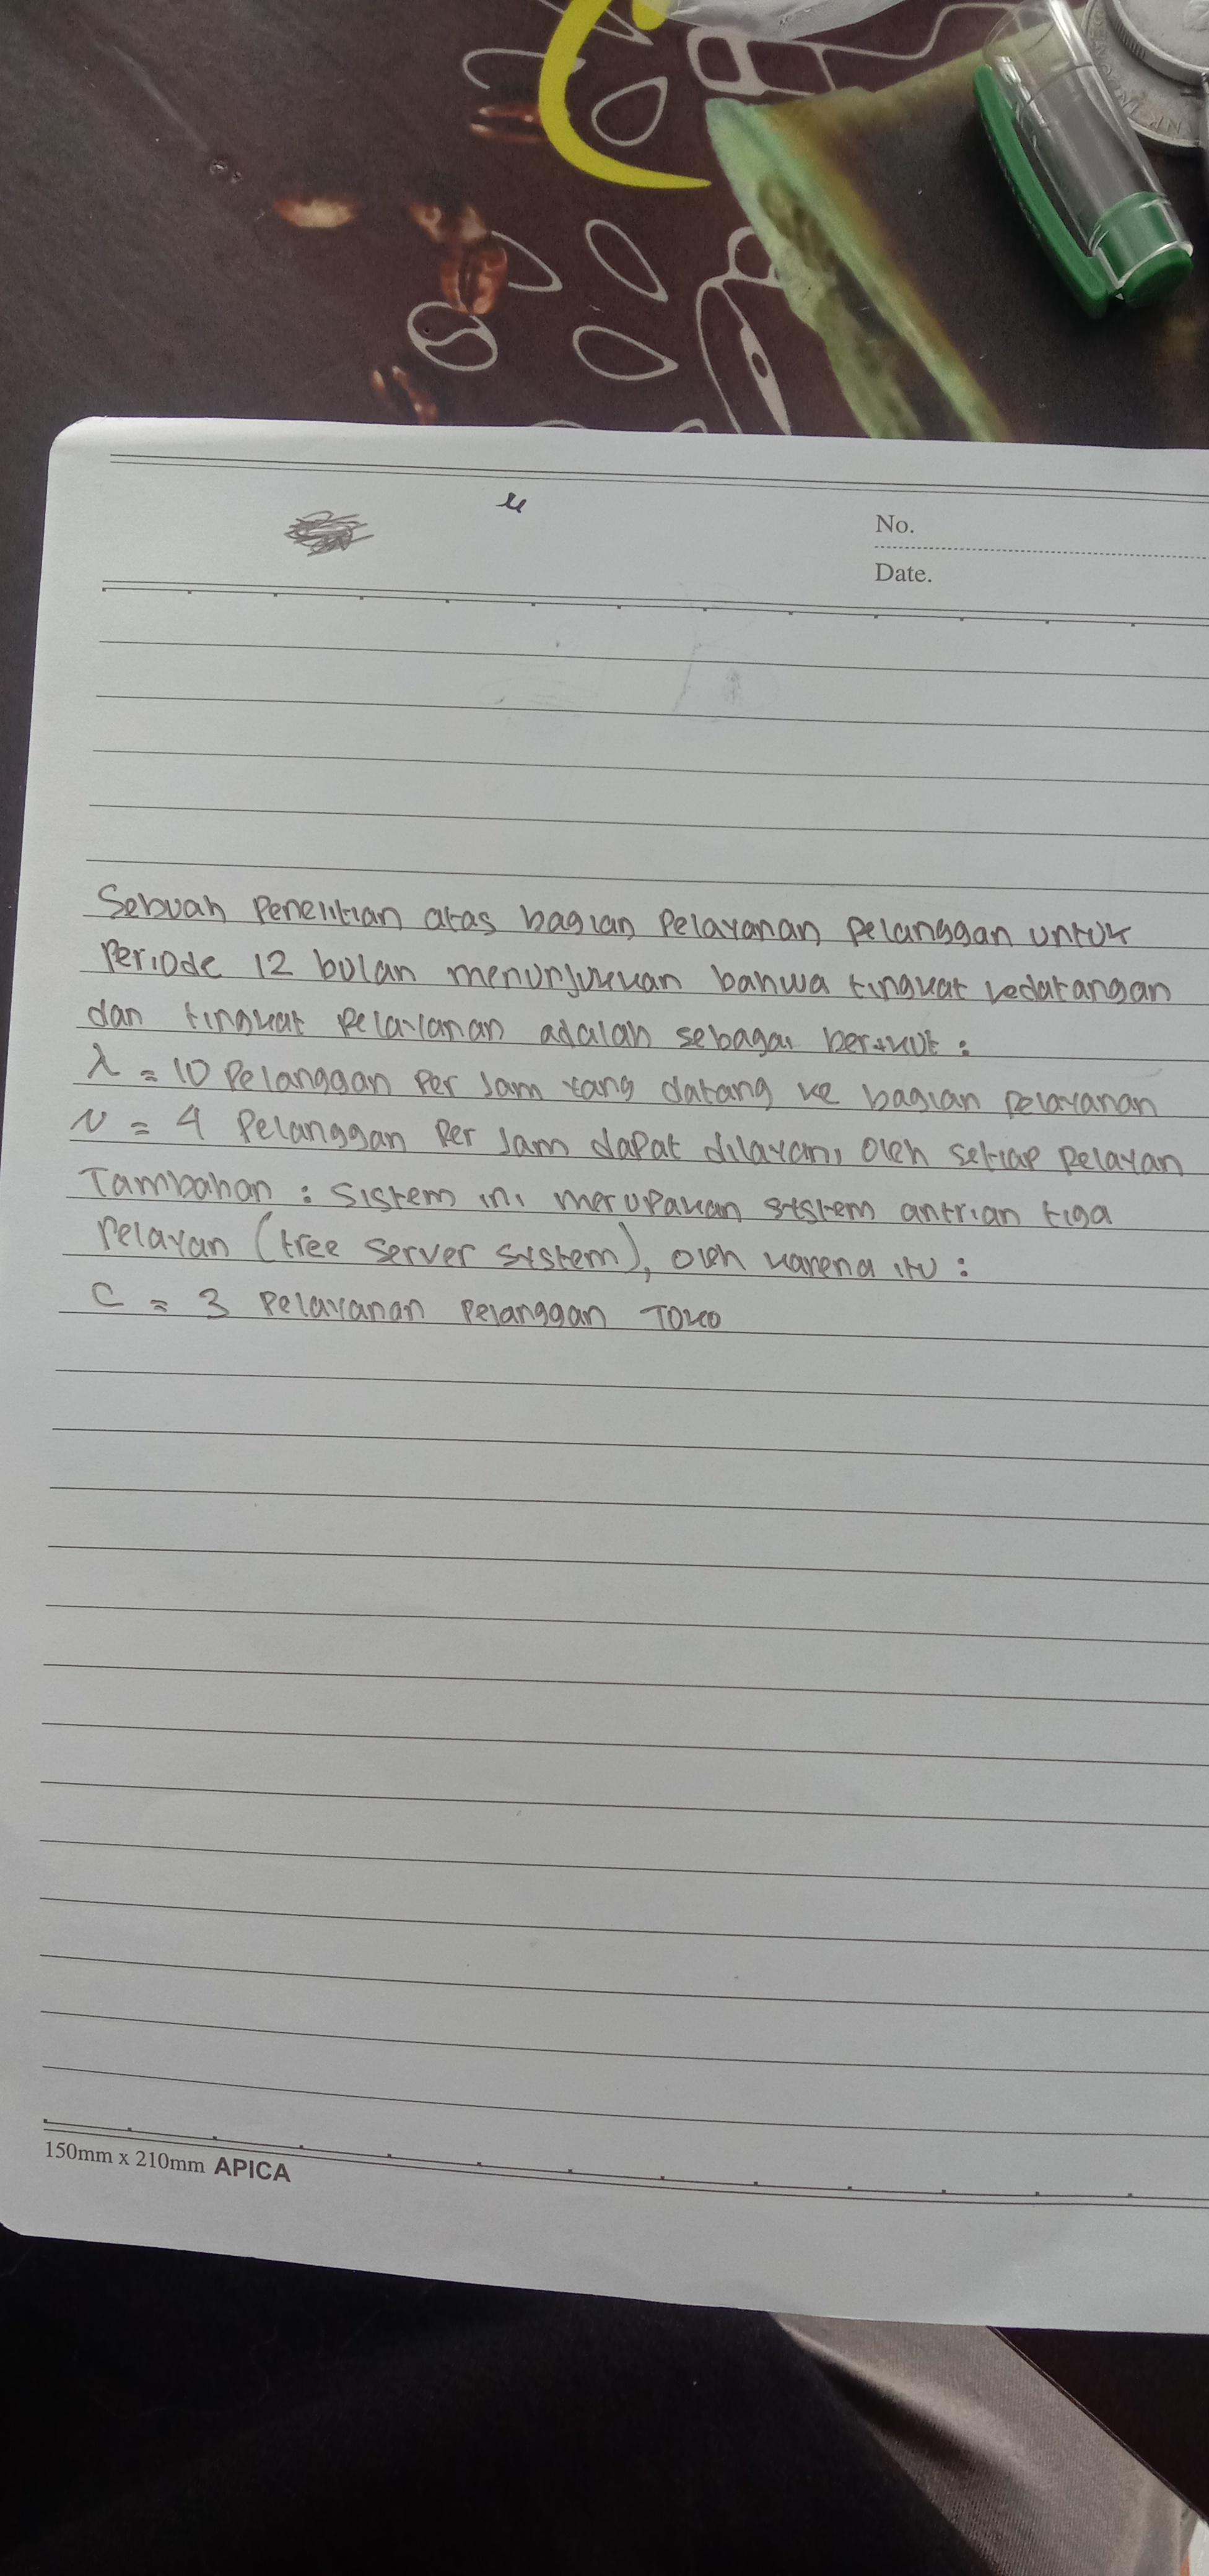 μ
No.
Date.
Sebuah Penelitian atas bagian Pelayanan Pelanggan untuk
Periode 12 bulan menunjukkan bahwa tingkat kedatangan
dan tingkat pelayanan adalah sebagai berikut :
λ = 10 Pelanggan Per Jam yang datang ke bagian pelayanan
N = 4 Pelanggan Per Jam dapat dilayani oleh setiap pelayan
Tambahan : Sistem ini merupakan sistem antrian tiga
Pelayan (tree server system), oleh karena itu :
C = 3 Pelayanan Pelanggan Toko
150mm x 210mm APICA